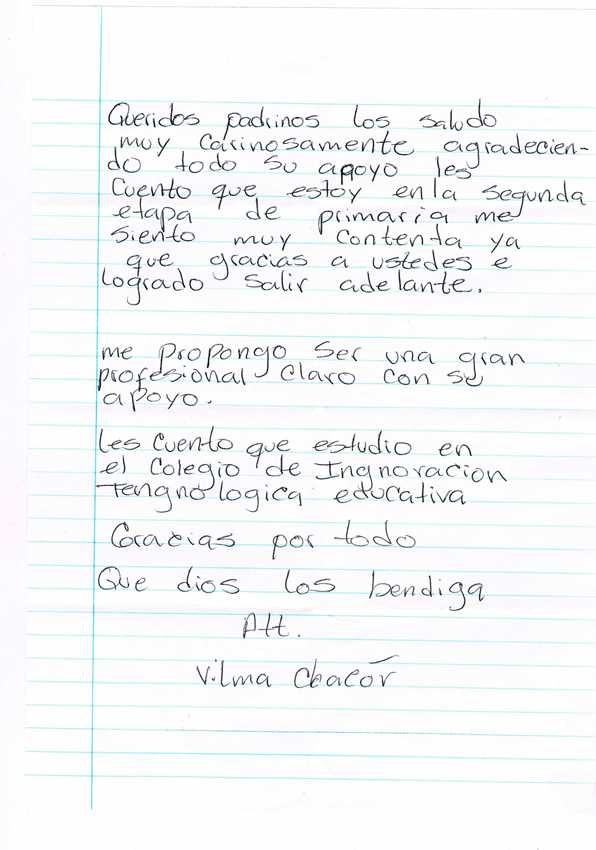 Queridos padrinos los saludo
muy carinosamente agradecien-
do todo su apoyo les
cuento que estoy en la segunda
etapa de primaria me
siento muy contenta ya
que gracias a ustedes e
logrado salir adelante.
me propongo ser una gran
profesional claro con su
apoyo.
Les cuento que estudio en
el colegio de Ingnoracion
Tengnologica educativa
Gracias por todo
Que dios los bendiga
Att.
Vilma Chacor